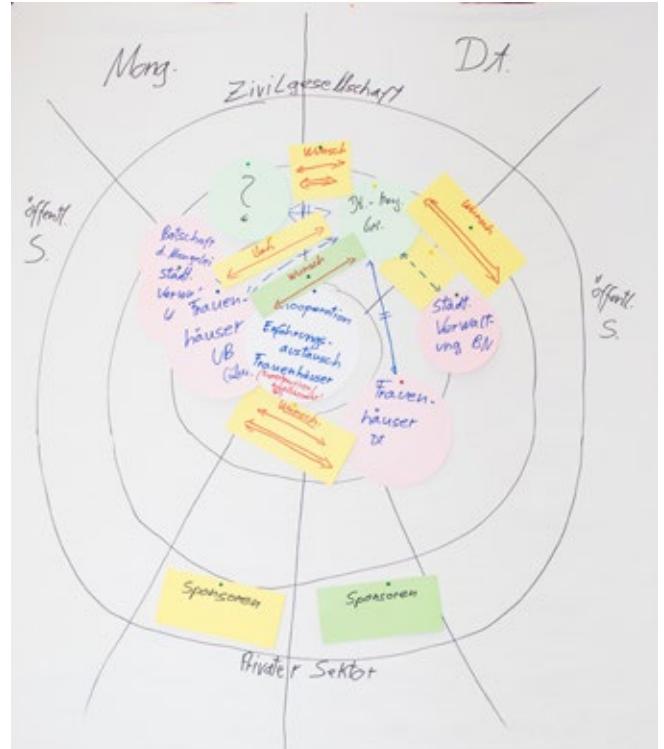 Mong.
Dt.
Zivilgesellschaft
öffentl.
S.
öffentl.
S.
?
Wunsch
Dt.-Mong.
Ges.
Wunsch
Botschaft
d. Mongolei
städt.
Verwal-
Frauen-
häuser
UB
Wunsch
Kooperation
Erfahrungs-
austausch
Frauenhäuser
Städt.
Verwalt-
ung BN
Frauen-
häuser
Dt
Wunsch
Sponsoren
Sponsoren
Privater Sektor